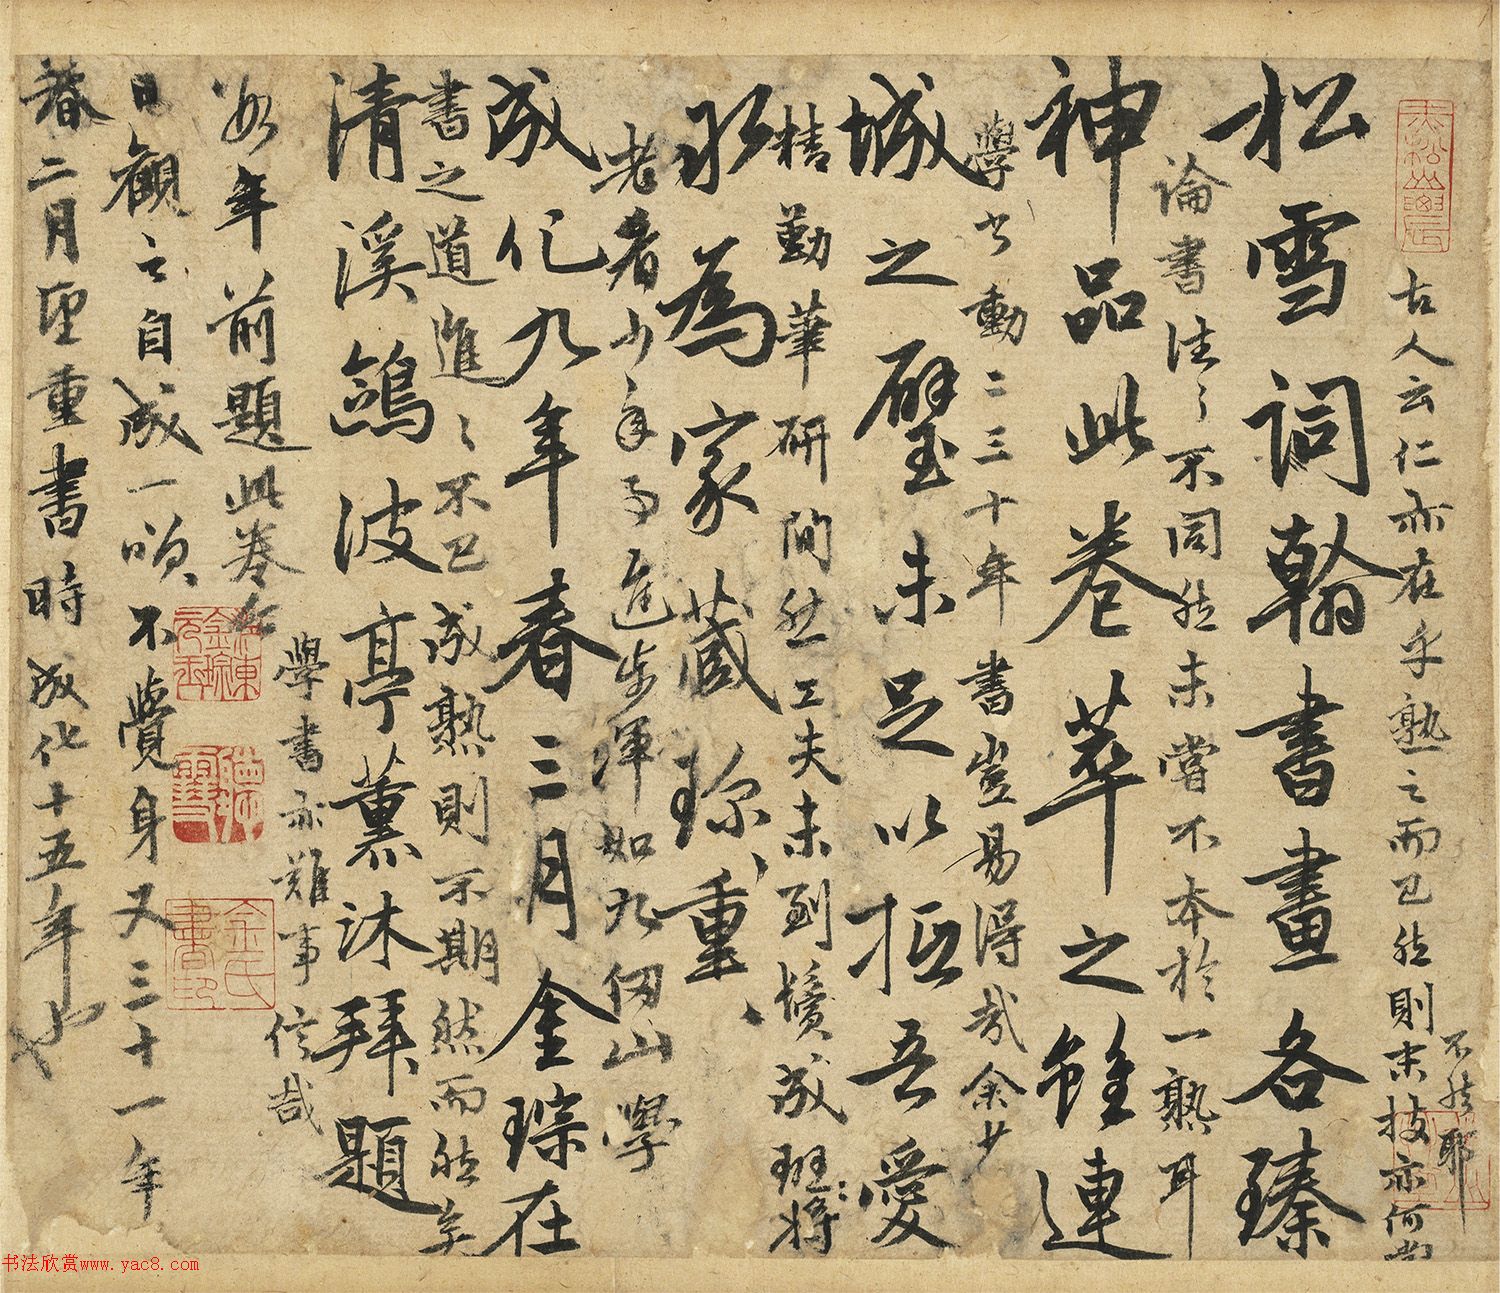 古人云仁亦在乎熟之而已然則末技亦何嘗
不然耶
松雪詞翰書畫各臻
論書法了不同然未嘗不本於一熟耳
神品此卷萃之雖連
學書動二三十年書豈易得哉余少
城之璧未足以抵吾愛
精勤筆研間然工夫未到鬢成斑將
永為家藏珍重
老者少年日進步渾如九仞山學
成化九年春三月金琮在
書之道進之不已成熟則不期然而然矣
清溪鷁波亭薰沐拜題
學書亦難事信哉
前題此卷在
年
日觀之自成一嘆不覺身又三十一年
春二月望重書時成化十五年也
书法欣赏www.yac8.com